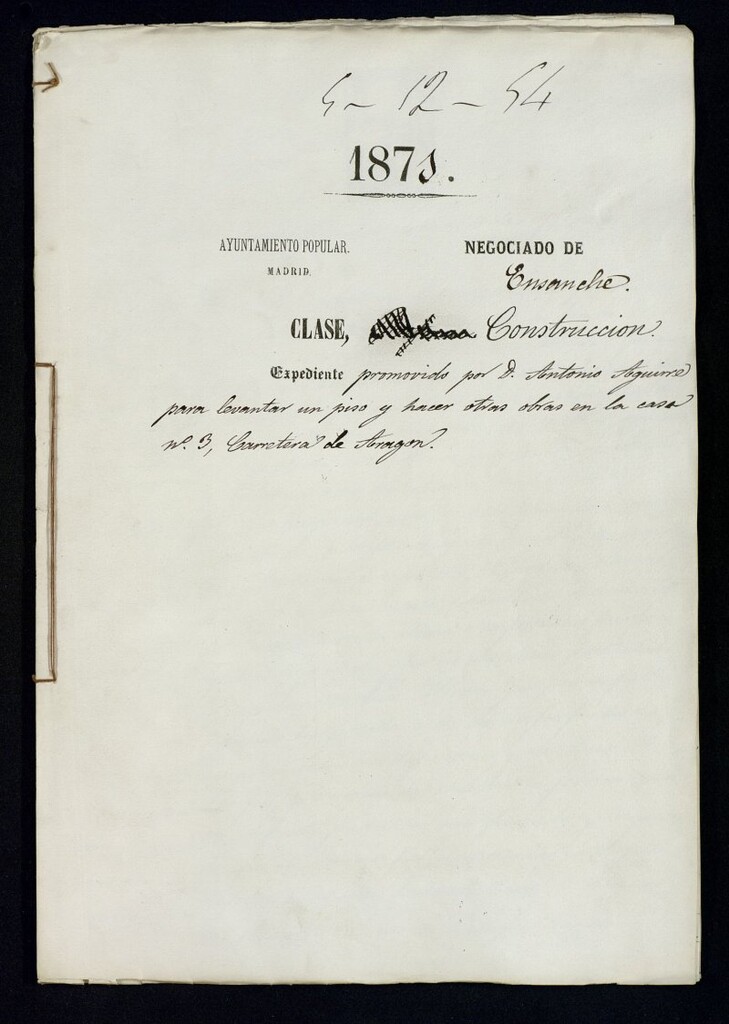 5 - 12 - 54
1871.
AYUNTAMIENTO POPULAR.
MADRID.
NEGOCIADO DE
Ensanche.
CLASE, Construccion.
Expediente promovido por D. Antonio Aguirre
para levantar un piso y hacer otras obras en la casa
nº. 3, Carretera de Aragon.